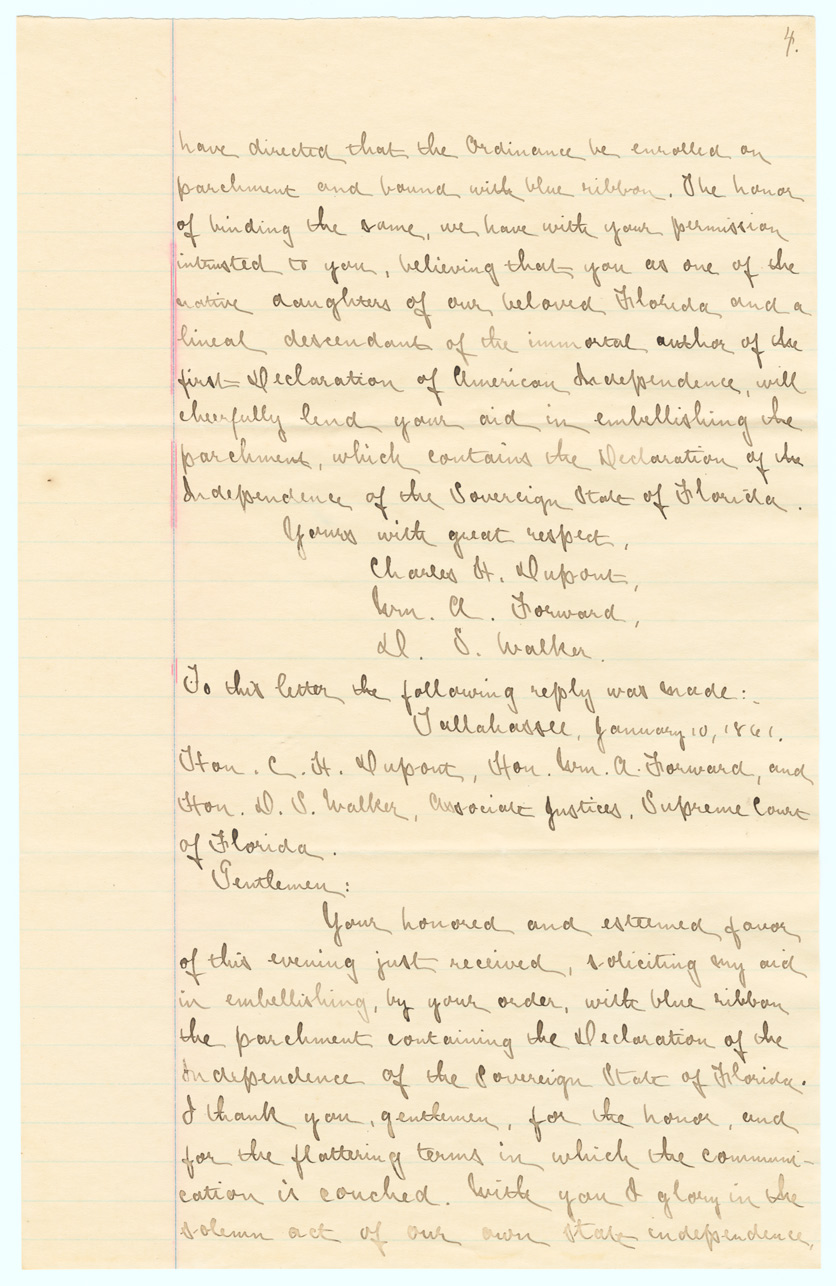 4.
have directed that the Ordinance be enrolled on
parchment and bound with blue ribbon. The honor
of binding the same, we have with your permission
intrusted to you, believing that you as one of the
native daughters of our beloved Florida and a
lineal descendant of the immortal author of the
first Declaration of American Independence, will
cheerfully lend your aid in embellishing the
parchment, which contains the Declaration of the
Independence of the Sovereign State of Florida.
Yours with great respect,
Charles H. Dupont,
Wm. A. Forward,
D. S. Walker.
To this letter the following reply was made:
Tallahassee, January 10, 1861.
Hon. C. H. Dupont, Hon. Wm. A. Forward, and
Hon. D. S. Walker, Associate Justices, Supreme Court
of Florida.
Gentlemen:
Your honored and esteemed favor
of this evening just received, soliciting my aid
in embellishing, by your order, with blue ribbon
the parchment containing the Declaration of the
Independence of the Sovereign State of Florida.
I thank you, gentlemen, for the honor, and
for the flattering terms in which the communi-
cation is couched. With you I glory in the
solemn act of our own state independence,